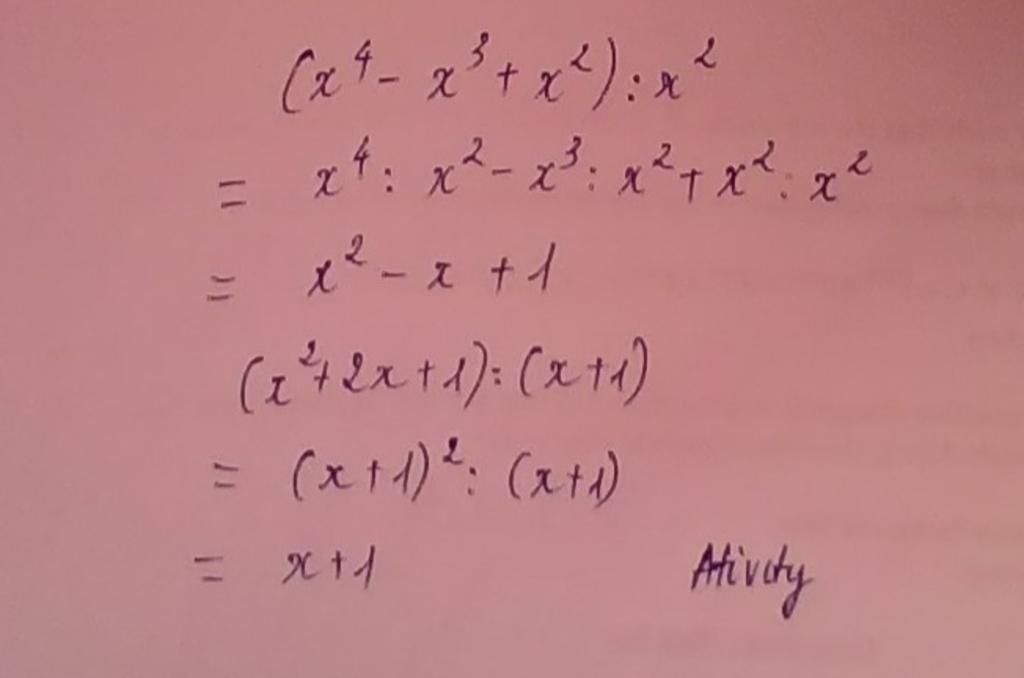 (x⁴ - x³ + x²) : x²
= x⁴ : x² - x³ : x² + x² : x²
= x² - x + 1
(x² + 2x + 1) : (x + 1)
= (x + 1)² : (x + 1)
= x + 1
Ativity